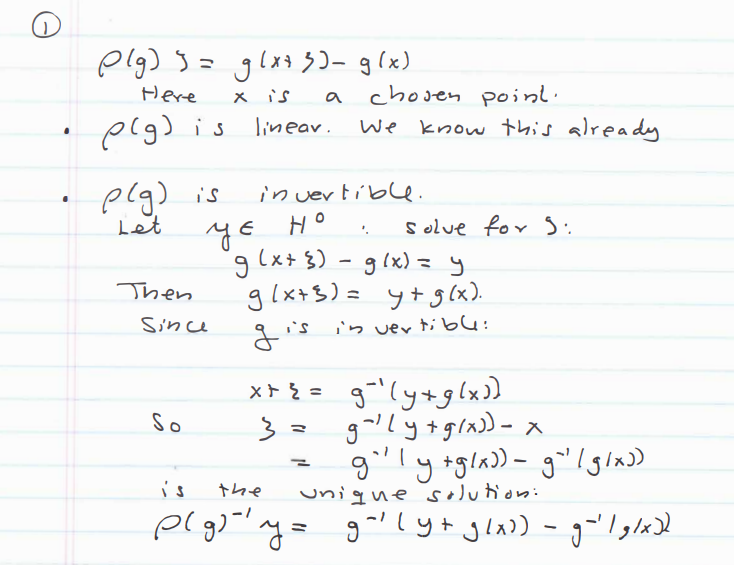 ①
ρ(g) ξ = g(x+ξ) - g(x)
Here x is a chosen point.
• ρ(g) is linear. We know this already
• ρ(g) is invertible.
Let y ∈ H⁰ ∴ solve for ξ:
g(x+ξ) - g(x) = y
Then g(x+ξ) = y + g(x).
Since g is invertible:
x + ξ = g⁻¹(y+g(x))
So ξ = g⁻¹(y+g(x)) - x
= g⁻¹(y+g(x)) - g⁻¹(g(x))
is the unique solution:
ρ(g)⁻¹ y = g⁻¹(y+g(x)) - g⁻¹(g(x))